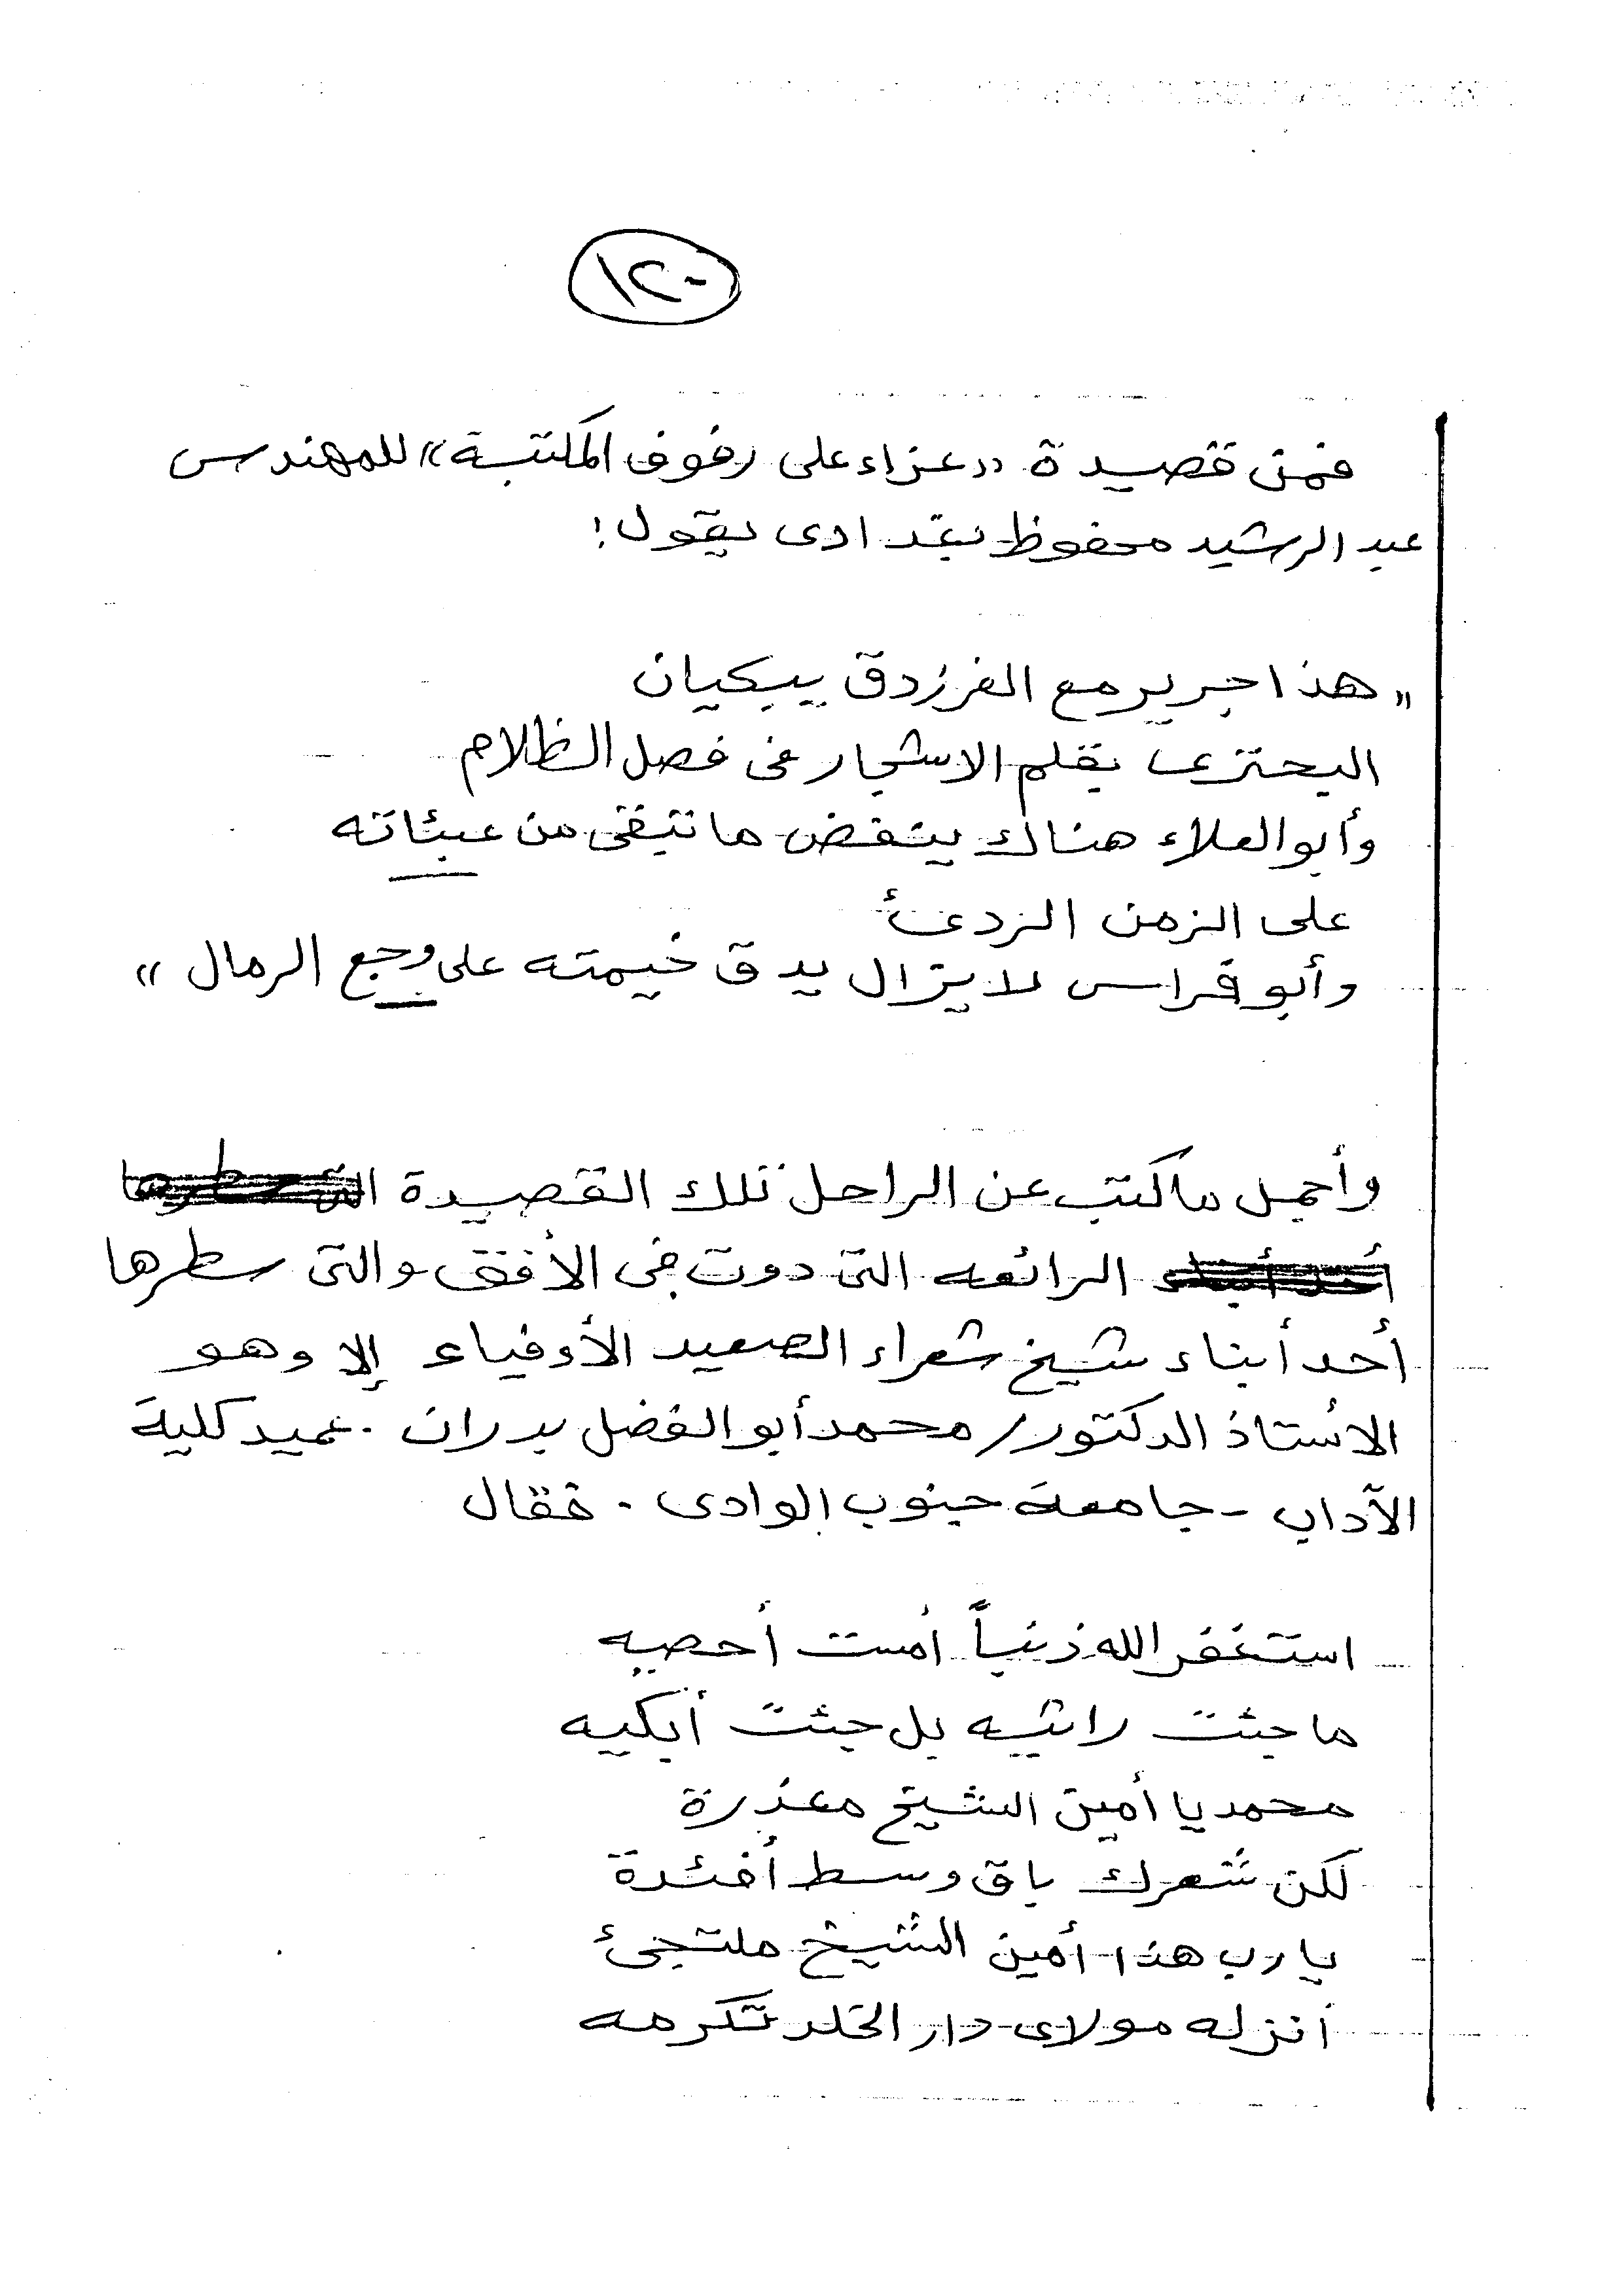 ١٢٠
فمن قصيدة «عزاء على رفوف المكتبة» للمهندس
عبد الرشيد محفوظ بغدادى يقول:
«هذا جرير مع الفرزدق يبكيان
البحترى يقلم الاشجار فى فصل الظلام
وأبو العلاء هناك ينفض ما تبقى من عبئاته
على الزمن الردئ
وأبو فراس لا يزال يدق خيمته على وجع الرمال»
وأجمل ما كتب عن الراحل تلك القصيدة
الرائعه التى دوت فى الأفق والتى سطرها
أحد أبناء شيخ شعراء الصعيد الأوفياء إلا وهو
الأستاذ الدكتور/ محمد أبو الفضل بدران . عميد كلية
الآداب - جامعة جنوب الوادى . فقال
استغفر الله ذنباً أمست أحصيه
ما جئت راثيه بل جئت أبكيه
محمد يا أمين الشيخ معذرة
لكن شعرك باق وسط أفئدة
يارب هذا أمين الشيخ ملتجئ
أنزله مولاى دار الخلد تكرمه